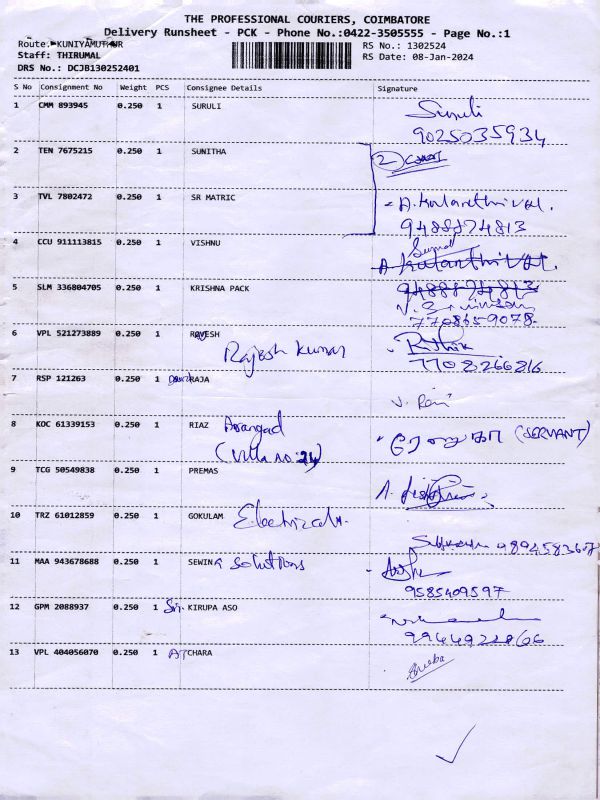 THE PROFESSIONAL COURIERS, COIMBATORE
Delivery Runsheet - PCK - Phone No.:0422-3505555 - Page No.:1
Route.:KUNIYAMUTHUR
RS No.: 1302524
Staff: THIRUMAL
RS Date: 08-Jan-2024
DRS No.: DCJB130252401
S No Consignment No Weight PCS Consignee Details Signature
1 CMM 893945 0.250 1 SURULI Suruli
9025035934
2 TEN 7675215 0.250 1 SUNITHA 2
3 TVL 7802472 0.250 1 SR MATRIC A. Kulanthivel.
9488874813
4 CCU 911113815 0.250 1 VISHNU
A Kulanthivel.
5 SLM 336804705 0.250 1 KRISHNA PACK 9488874813
7708659078
6 VPL 521273889 0.250 1 Rajesh Kumar Rithik
7708266816
7 RSP 121263 0.250 1 RAJA
8 KOC 61339153 0.250 1 RIAZ (SERVANT)
(Villa no: 24)
9 TCG 50549838 0.250 1 PREMAS
10 TRZ 61012859 0.250 1 GOKULAM Electricals.
11 MAA 943678688 0.250 1 SEWING Solutions
9585409597
12 GPM 2088937 0.250 1 Sri KIRUPA ASO
13 VPL 404056070 0.250 1 CHARA